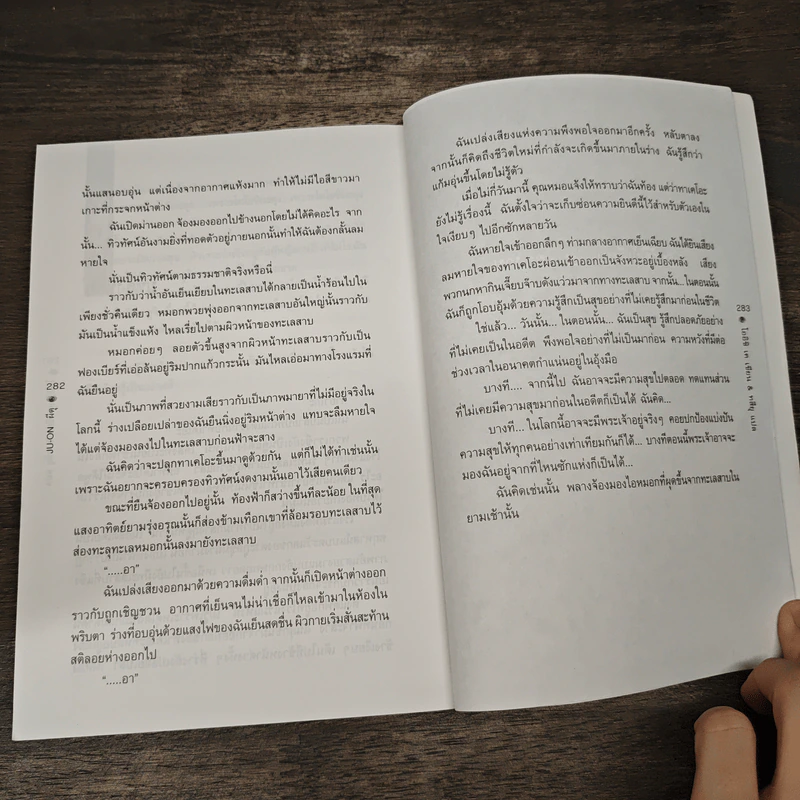 นั้นแสนอบอุ่น แต่เนื่องจากอากาศแห้งมาก ทำให้ไม่มีไอสีขาวมา
เกาะที่กระจกหน้าต่าง
ฉันเปิดม่านออก จ้องมองออกไปข้างนอกโดยไม่ได้คิดอะไร จาก
นั้น... ทิวทัศน์อันงามยิ่งที่ทอดตัวอยู่ภายนอกนั้นทำให้ฉันต้องกลั้นลม
หายใจ
นั่นเป็นทิวทัศน์ตามธรรมชาติจริงหรือนี่
ราวกับว่าน้ำอันเย็นเยียบในทะเลสาบได้กลายเป็นน้ำร้อนไปใน
เพียงชั่วคืนเดียว หมอกพวยพุ่งออกจากทะเลสาบอันใหญ่นั้นราวกับ
มันเป็นน้ำแข็งแห้ง ไหลเรี่ยไปตามผิวหน้าของทะเลสาบ
หมอกค่อยๆ ลอยตัวขึ้นสูงจากผิวหน้าทะเลสาบราวกับเป็น
ฟองเบียร์ที่เอ่อล้นอยู่ริมปากแก้วกระนั้น มันไหลเอ่อมาทางโรงแรมที่
ฉันยืนอยู่
นั่นเป็นภาพที่สวยงามเสียราวกับเป็นภาพมายาที่ไม่มีอยู่จริงใน
โลกนี้ ร่างเปลือยเปล่าของฉันยืนนิ่งอยู่ริมหน้าต่าง แทบจะลืมหายใจ
ได้แต่จ้องมองลงไปในทะเลสาบก่อนฟ้าจะสาง
ฉันคิดว่าจะปลุกทาเคโอะขึ้นมาดูด้วยกัน แต่ก็ไม่ได้ทำเช่นนั้น
เพราะฉันอยากจะครอบครองทิวทัศน์งดงามนั้นเอาไว้เสียคนเดียว
ขณะที่ยืนจ้องออกไปอยู่นั้น ท้องฟ้าก็สว่างขึ้นทีละน้อย ในที่สุด
แสงอาทิตย์ยามรุ่งอรุณนั้นก็ส่องข้ามเทือกเขาที่ล้อมรอบทะเลสาบไว้
ส่องทะลุทะเลหมอกนั้นลงมายังทะเลสาบ
".....อา"
ฉันเปล่งเสียงออกมาด้วยความดื่มด่ำ จากนั้นก็เปิดหน้าต่างออก
ราวกับถูกเชิญชวน อากาศที่เย็นจนไม่น่าเชื่อก็ไหลเข้ามาในห้องใน
พริบตา ร่างที่อบอุ่นด้วยแสงไฟของฉันเย็นสดชื่น ผิวกายเริ่มสั่นสะท้าน
สติลอยห่างออกไป
".....อา"
282
JU-ON จูอน
ฉันเปล่งเสียงแห่งความพึงพอใจออกมาอีกครั้ง หลับตาลง
จากนั้นก็คิดถึงชีวิตใหม่ที่กำลังจะเกิดขึ้นมาภายในร่าง ฉันรู้สึกว่า
แก้มอุ่นขึ้นโดยไม่รู้ตัว
เมื่อไม่กี่วันมานี้ คุณหมอแจ้งให้ทราบว่าฉันท้อง แต่ว่าทาเคโอะ
ยังไม่รู้เรื่องนี้ ฉันตั้งใจว่าจะเก็บซ่อนความยินดีนี้ไว้สำหรับตัวเองใน
ใจเงียบๆ ไปอีกซักหลายวัน
ฉันหายใจเข้าออกลึกๆ ท่ามกลางอากาศเย็นเฉียบ ฉันได้ยินเสียง
ลมหายใจของทาเคโอะผ่อนเข้าออกเป็นจังหวะอยู่เบื้องหลัง เสียง
พวกนกหากินเจี๊ยบจ๊าบดังแว่วมาจากทางทะเลสาบ จากนั้น...ในตอนนั้น
ฉันก็ถูกโอบอุ้มด้วยความรู้สึกเป็นสุขอย่างที่ไม่เคยรู้สึกมาก่อนในชีวิต
ใช่แล้ว... วันนั้น... ในตอนนั้น... ฉันเป็นสุข รู้สึกปลอดภัยอย่าง
ที่ไม่เคยเป็นในอดีต พึงพอใจอย่างที่ไม่เป็นมาก่อน ความหวังที่มีต่อ
ช่วงเวลาในอนาคตกำแน่นอยู่ในอุ้งมือ
บางที.... จากนี้ไป ฉันอาจจะมีความสุขไปตลอด ทดแทนส่วน
ที่ไม่เคยมีความสุขมาก่อนในอดีตก็เป็นได้ ฉันคิด...
บางที... ในโลกนี้อาจจะมีพระเจ้าอยู่จริงๆ คอยปกป้องแบ่งปัน
ความสุขให้ทุกคนอย่างเท่าเทียมกันก็ได้... บางทีตอนนี้พระเจ้าอาจจะ
มองฉันอยู่จากที่ไหนซักแห่งก็เป็นได้...
ฉันคิดเช่นนั้น พลางจ้องมองไอหมอกที่ผุดขึ้นจากทะเลสาบใน
ยามเช้านั้น
283